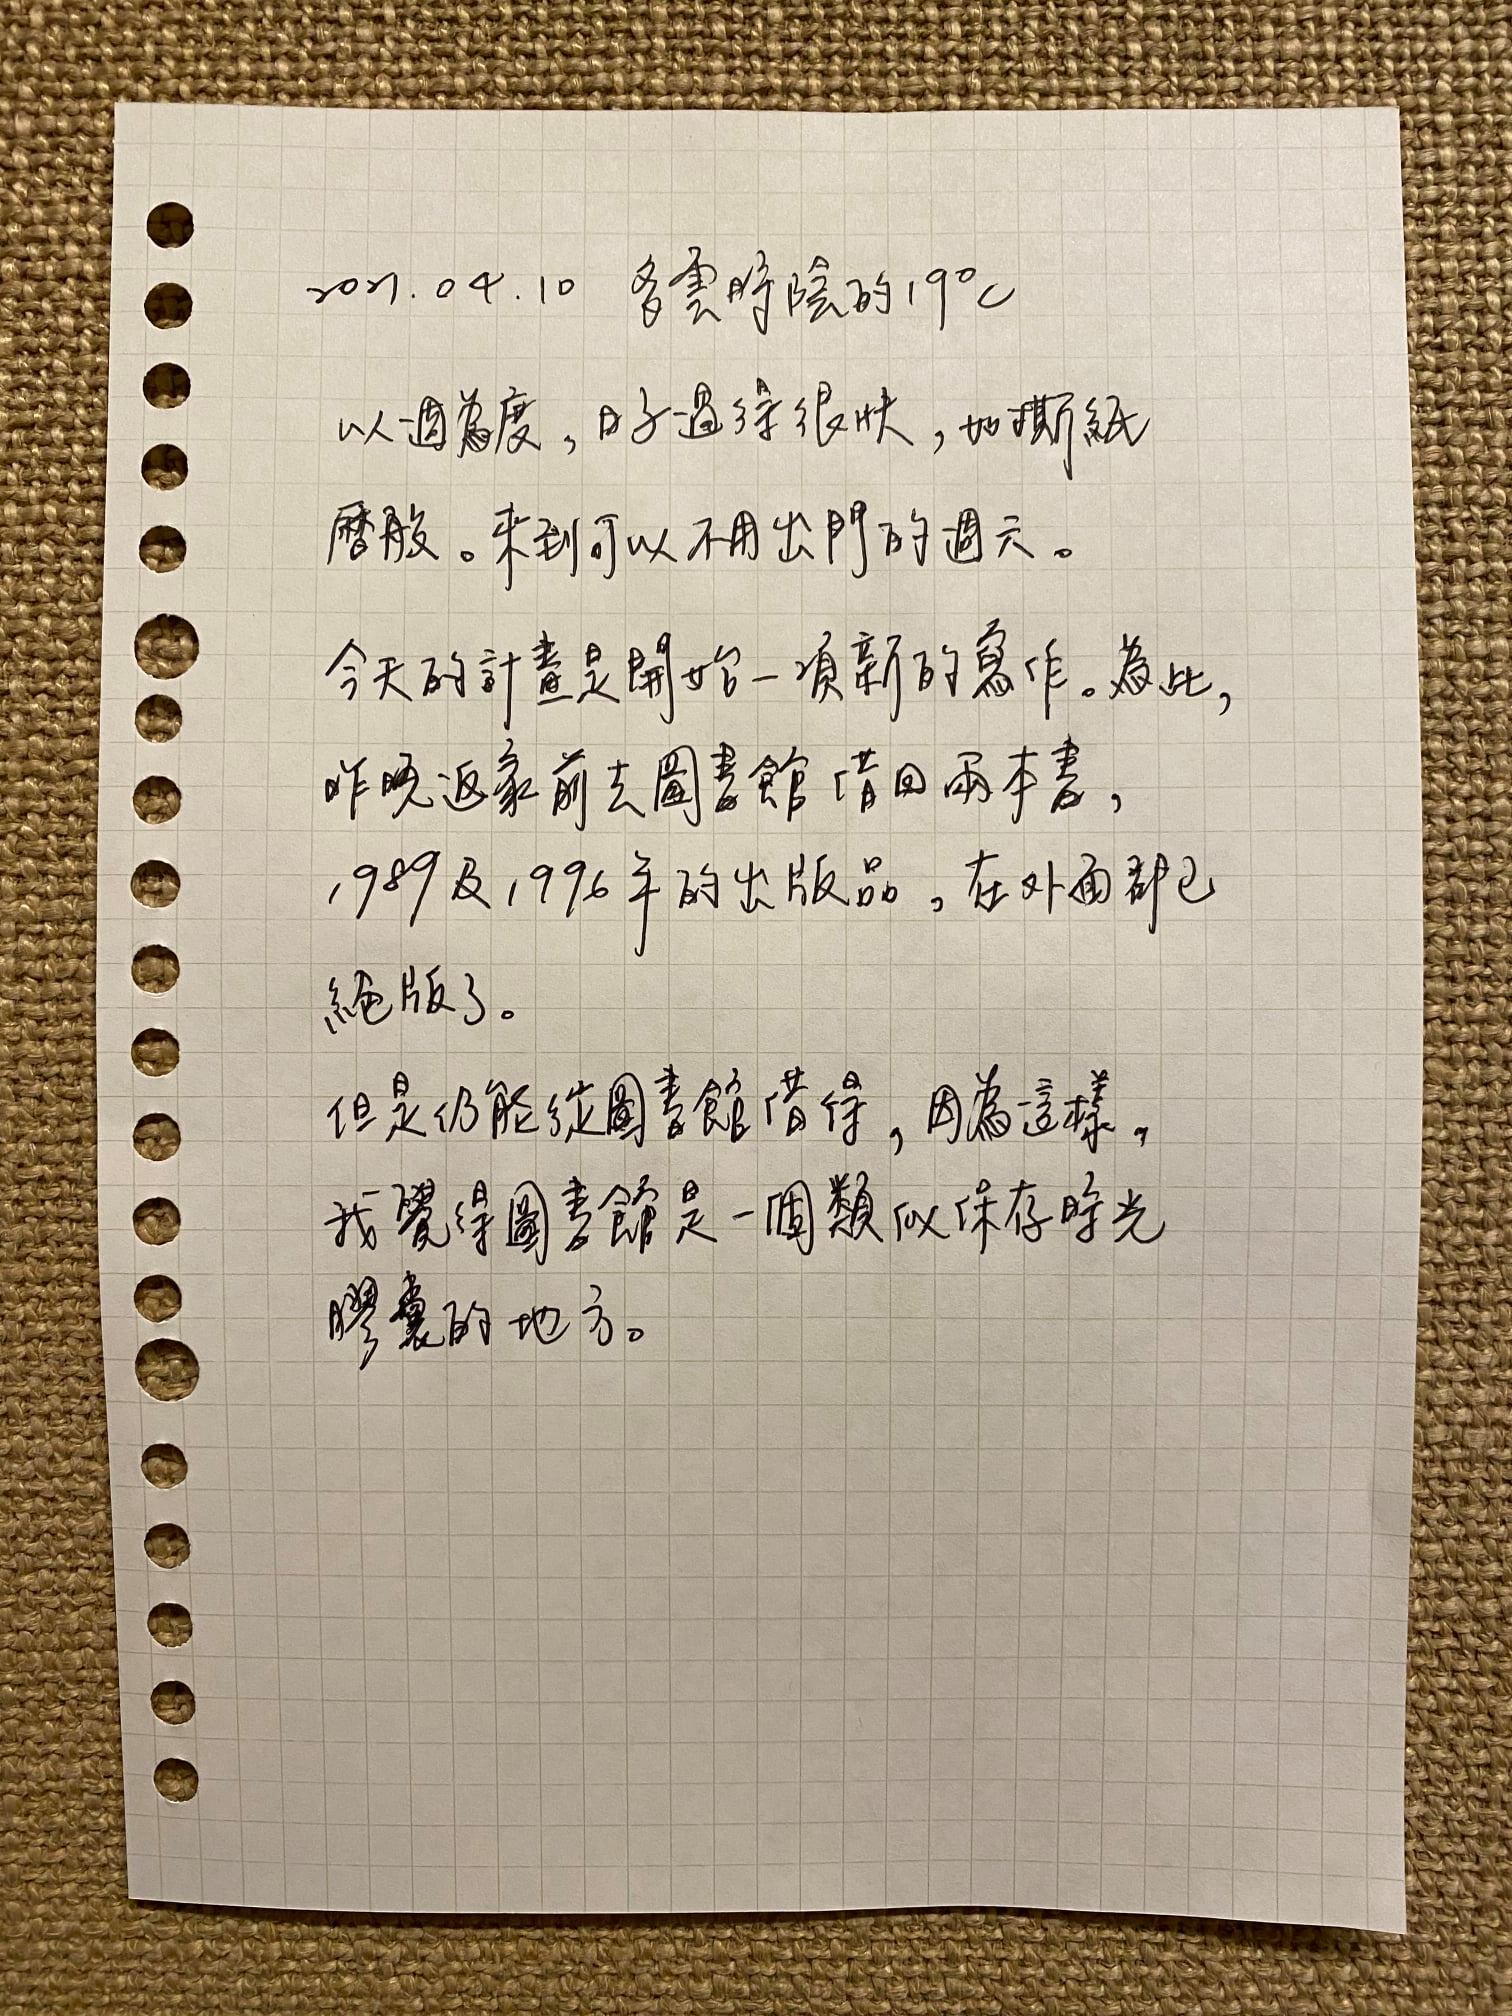 2021.04.10 多雲時陰的19°C
以週為度，日子過得很快，如撕紙
曆般。來到可以不用出門的週六。
今天的計畫是開始一項新的寫作。為此，
昨晚返家前去圖書館借回兩本書，
1989及1996年的出版品，在外面都已
絕版了。
但是仍能從圖書館借得，因為這樣，
我覺得圖書館是一個類似保存時光
膠囊的地方。